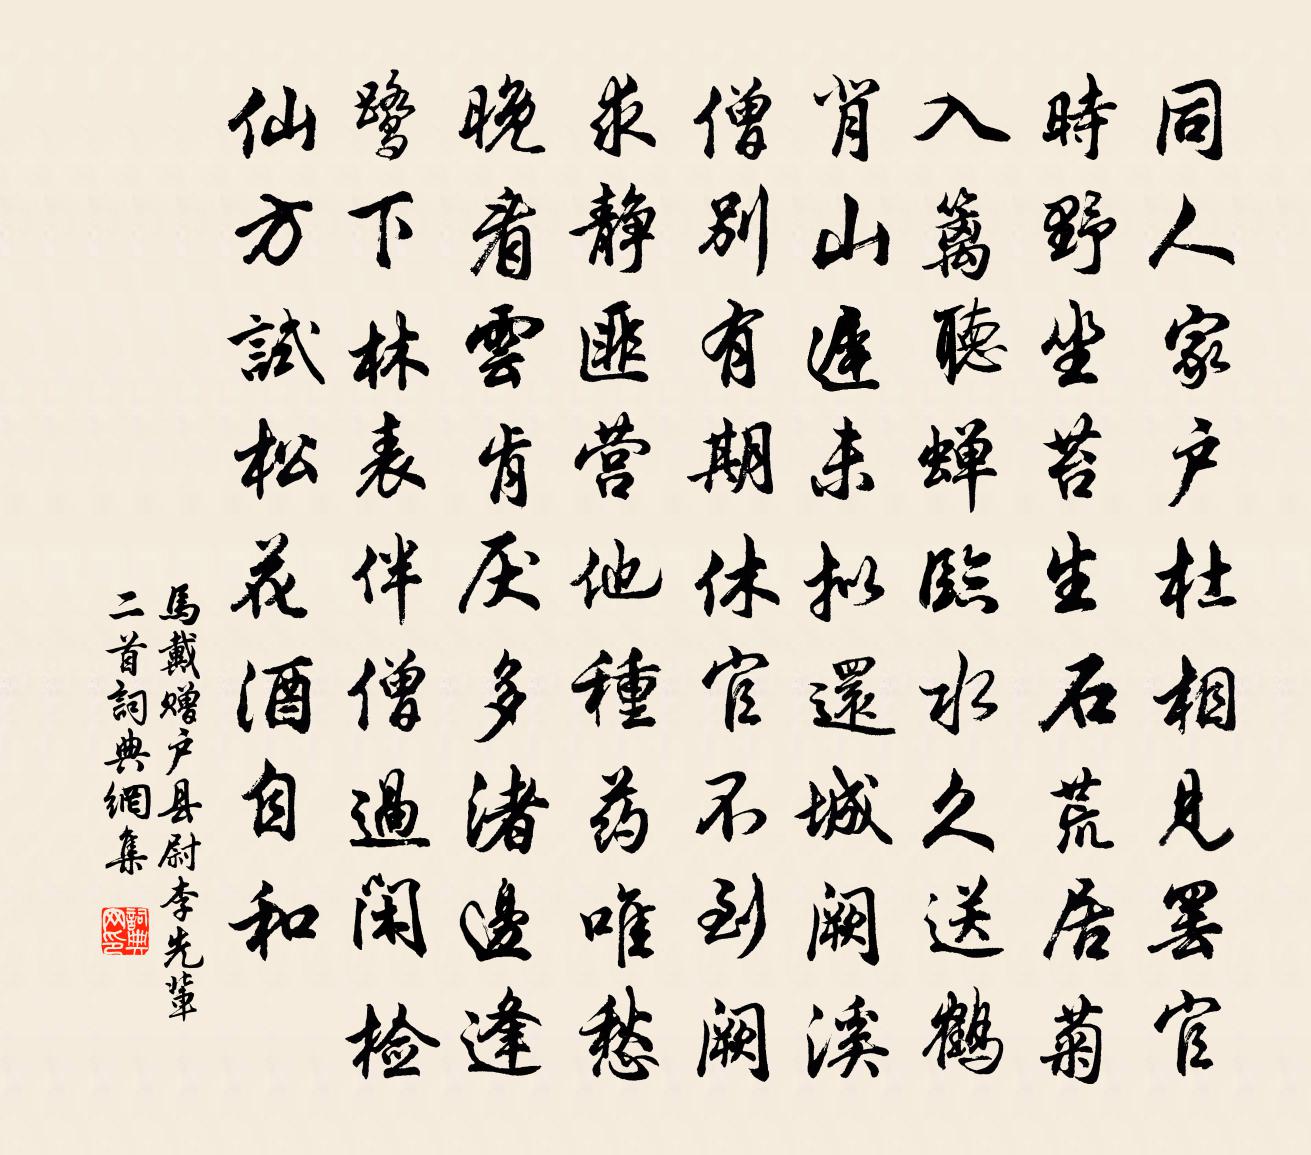 同人家户杜相見罢官
時野坐苔生石荒居菊
入籬聽蝉臨水久送鶴
背山遲未拟還城阙溪
僧别有期休官不到阙
求静匪营他種药唯愁
晚看雲肯厌多渚邊逢
鹭下林表伴僧過闲检
仙方試松花酒自和
馬戴赠户县尉李先輩
二首詞典網集
詞典网印